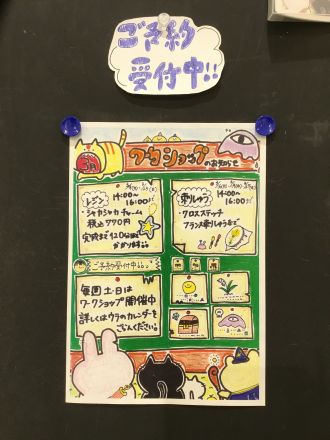 ご予約
受付中!!
ワークショップ
のお知らせ
レジン
14:00〜
16:00まで
・シャカシャカチャーム
税込770円
刺しゅう
14:00〜
16:00まで
・クロスステッチ
ご予約受付中
毎週土・日は
ワークショップ開催中
詳しくはウラのカレンダーを
ごらんください。